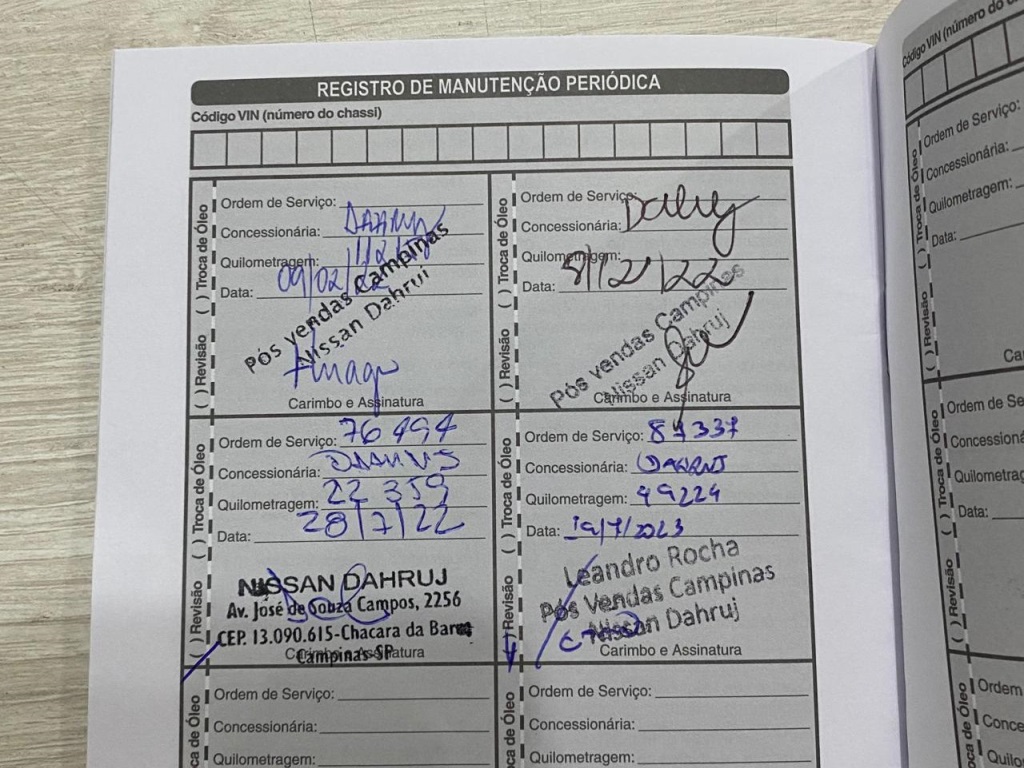 REGISTRO DE MANUTENÇÃO PERIÓDICA
Código VIN (número do chassi)
( ) Revisão ( ) Troca de Óleo
Ordem de Serviço:
Concessionária: DAHRUJ
Quilometragem:
Data: 09/02/22
Pós vendas Campinas
Nissan Dahruj
Carimbo e Assinatura
( ) Revisão ( ) Troca de Óleo
Ordem de Serviço:
Concessionária: Dahruj
Quilometragem:
Data: 8/12/22
Pós vendas Campinas
Nissan Dahruj
Carimbo e Assinatura
( ) Revisão ( ) Troca de Óleo
Ordem de Serviço: 76494
Concessionária: DAHRUJ
Quilometragem: 22 359
Data: 28/7/22
NISSAN DAHRUJ
Av. José de Souza Campos, 2256
CEP. 13.090.615-Chacara da Barra
Campinas-SP
Carimbo e Assinatura
( ) Revisão ( ) Troca de Óleo
Ordem de Serviço: 87337
Concessionária: DAHRUJ
Quilometragem: 49224
Data: 19/7/2023
Leandro Rocha
Pós Vendas Campinas
Nissan Dahruj
Carimbo e Assinatura
ca de Óleo
Ordem de Serviço:
Concessionária:
Quilometragem:
ca de Óleo
Ordem de Serviço:
Concessionária:
Quilometragem:
Código VIN (número do
( ) Revisão ( ) Troca de Óleo
Ordem de Serviço:
Concessionária:
Quilometragem:
Data:
Ca
( ) Revisão ( ) Troca de Óleo
Ordem de Se
Concessioná
Quilometrag
Data:
ca de Óleo
Ordem
Conce
Quilo